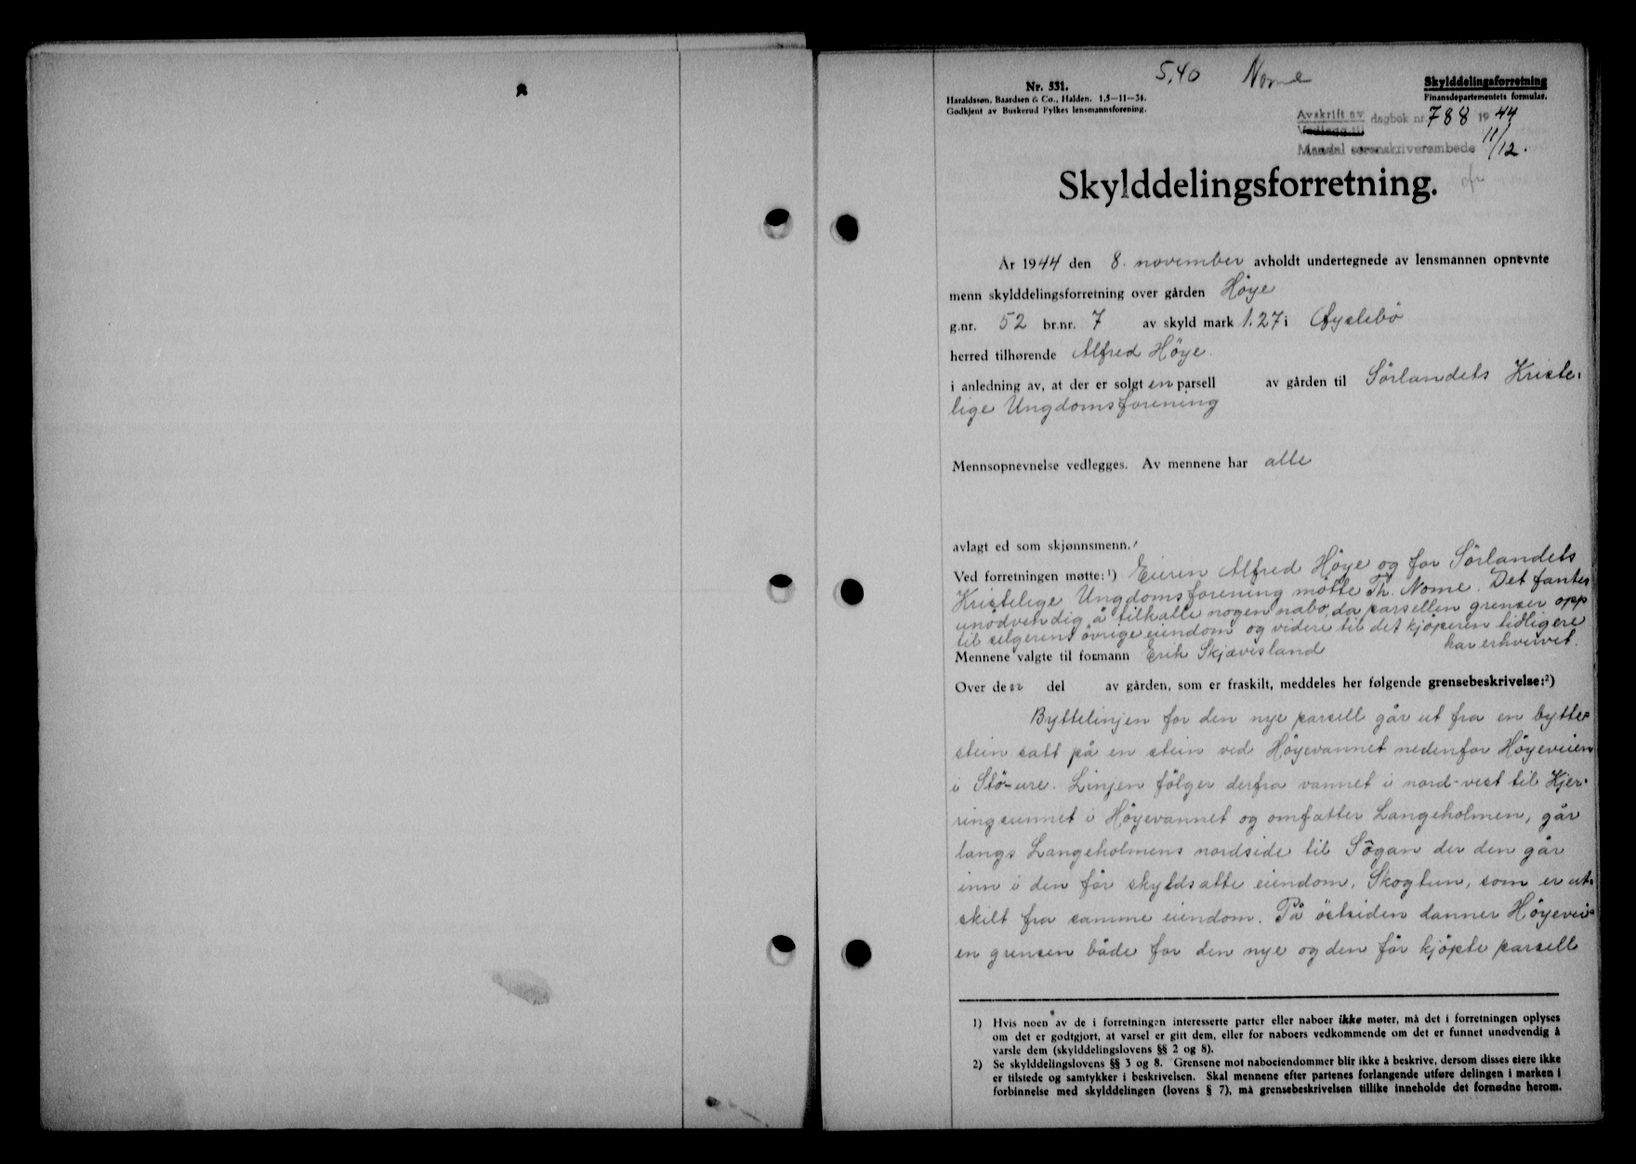 5,40 Nome
Nr. 531.
Haraldssøn, Baardsen & Co., Halden. 1,5—11—34.
Godkjent av Buskerud Fylkes lensmannsforening.
Skylddelingsforretning
Finansdepartementets formular.
Avskrift av dagbok nr. 788 1944
Vedlegg til
Mandal sorenskriverembede 11/12.
Skylddelingsforretning.
År 1944 den 8. november avholdt undertegnede av lensmannen opnevnte
menn skylddelingsforretning over gården Höye
g.nr. 52 br.nr. 7 av skyld mark 1.27 i Öyslebö
herred tilhørende Alfred Höye.
i anledning av, at der er solgt en parsell av gården til Sörlandets Kriste-
lige Ungdomsforening
Mennsopnevnelse vedlegges. Av mennene har alle
avlagt ed som skjønnsmenn.
Ved forretningen møtte: 1) Eieren Alfred Höye og for Sörlandets
Kristelige Ungdomsforening mötte Th. Nome. Det fantes
unödvendig å tilkalle nogen nabo, da parsellen grenser opp
til selgerens övrige eiendom og videre til det kjöperen tidligere
har erhvervet.
Mennene valgte til formann Erik Skjævesland
Over den del av gården, som er fraskilt, meddeles her følgende grensebeskrivelse: 2)
Byttelinjen for den nye parsell går ut fra en bytte-
stein satt på en stein ved Höyevannet nedenfor Höyeveien
i Stö-ure. Linjen fölger derfra vannet i nord-vest til Kjer-
ringsunnet i Höyevannet og omfatter Langeholmen, går
langs Langeholmens nordside til Sögan der den går
inn i den för skyldsatte eiendom, Skogtun, som er ut-
skilt fra samme eiendom. På östsiden danner Höyevei-
en grensen både for den nye og den för kjöpte parsell
1) Hvis noen av de i forretningen interesserte parter eller naboer ikke møter, må det i forretningen oplyses
om det er godtgjort, at varsel er gitt dem, eller for naboers vedkommende om det er funnet unødvendig å
varsle dem (skylddelingslovens §§ 2 og 8).
2) Se skylddelingslovens §§ 3 og 8. Grensene mot naboeiendommer blir ikke å beskrive, dersom disses eiere ikke
er tilstede og samtykker i beskrivelsen. Skal mennene efter partenes forlangende utføre delingen i marken i
forbinnelse med skylddelingen (lovens § 7), må grensebeskrivelsen tillike inneholde det fornødne herom.